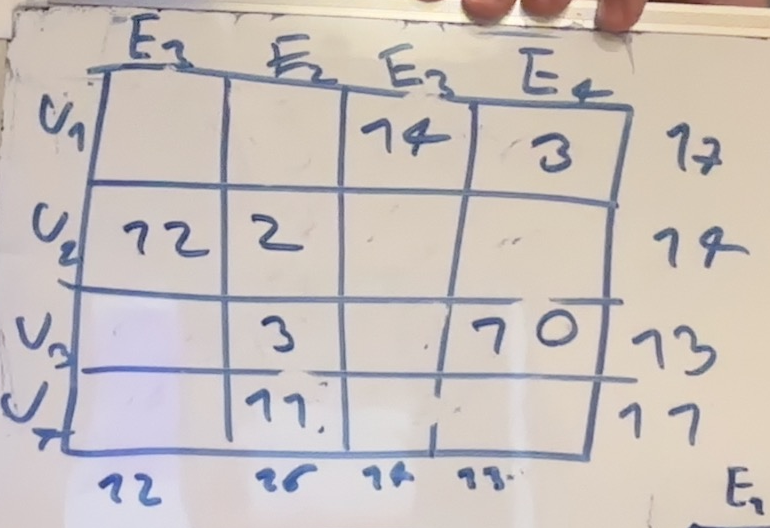 E₁ E₂ E₃ E₄
U₁ 14 3 17
U₂ 12 2 14
U₃ 3 10 13
U₄ 11. 11
12 16 14 13
E₁